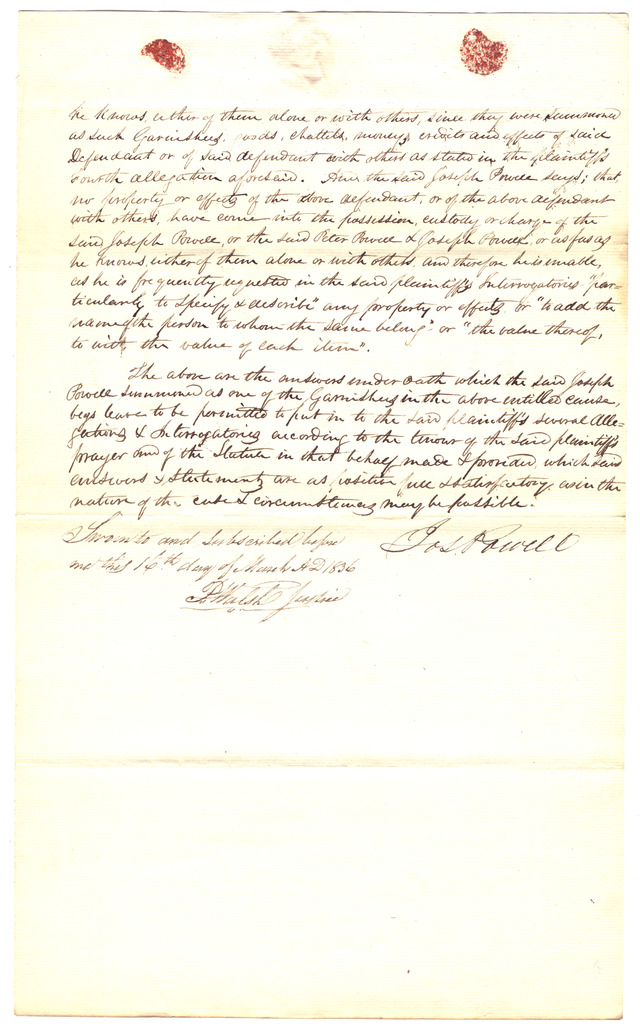 he knows, either of them alone or with others, since they were summoned
as such Garnishees, goods, chattels, moneys, credits and effects of said
Defendant or of said defendant with others as stated in the plaintiff's
fourth allegation aforesaid. And the said Joseph Powell says; that
no property or effects of the above defendant, or of the above defendant
with others, have come into the possession, custody or charge of the
said Joseph Powell, or the said Peter Powell & Joseph Powell, or as far as
he knows either of them alone or with others, and therefore he is unable,
as he is frequently requested in the said plaintiff's Interrogatories "par-
ticularly to specify & describe" any property or effects, or "to add the
name of the person to whom the same belong" or "the value thereof,
to wit, the value of each item".
The above are the answers under oath which the said Joseph
Powell summoned as one of the Garnishees in the above entitled cause,
begs leave to be permitted to put in to the said plaintiff's several Alle-
gations & Interrogatories according to the tenour of the said plaintiff's
prayer and of the Statute in that behalf made & provided, which said
answers & statements are as positive full & satisfactory as in the
nature of the case & circumstances may be possible.
Sworn to and Subscribed before
me this 16th day of March AD 1836
Jos Powell
P Walsh Justice